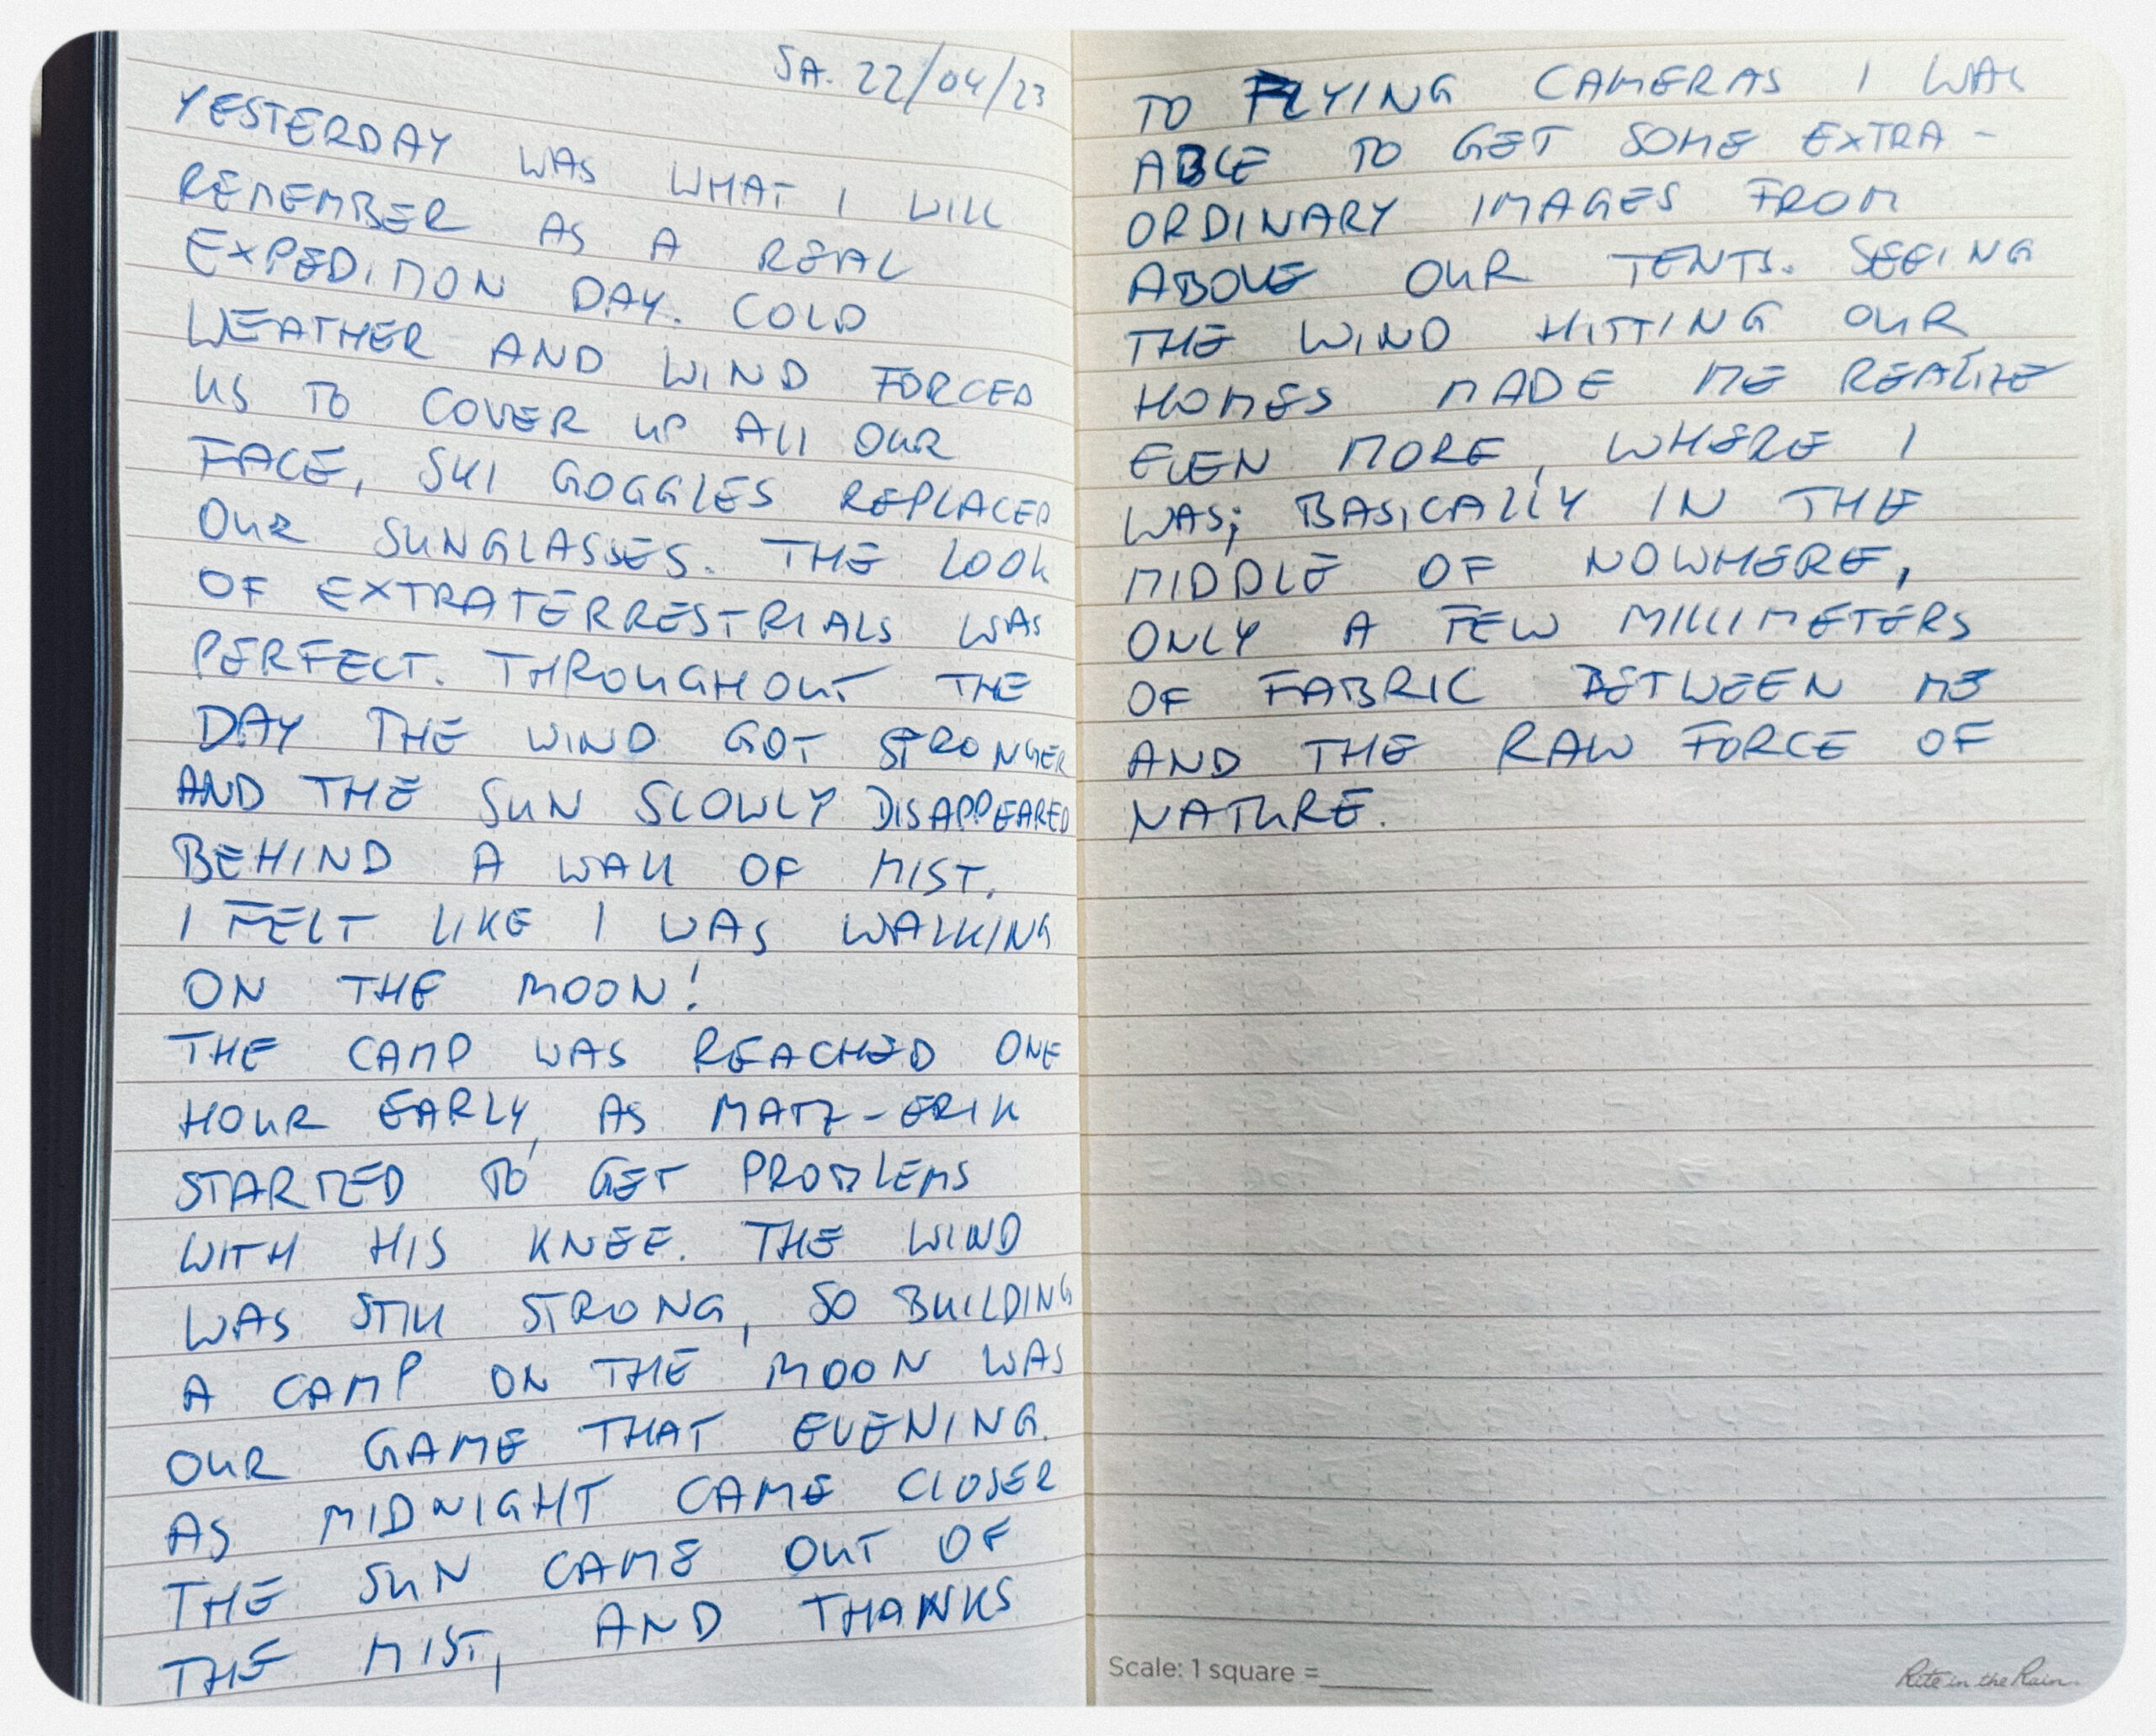 SA. 22/04/23
YESTERDAY WAS WHAT I WILL
REMEMBER AS A REAL
EXPEDITION DAY. COLD
WEATHER AND WIND FORCED
US TO COVER UP ALL OUR
FACE, SKI GOGGLES REPLACED
OUR SUNGLASSES. THE LOOK
OF EXTRATERRESTRIALS WAS
PERFECT. THROUGHOUT THE
DAY THE WIND GOT STRONGER
AND THE SUN SLOWLY DISAPPEARED
BEHIND A WALL OF MIST.
I FELT LIKE I WAS WALKING
ON THE MOON!
THE CAMP WAS REACHED ONE
HOUR EARLY, AS MATZ-ERIK
STARTED TO GET PROBLEMS
WITH HIS KNEE. THE WIND
WAS STILL STRONG, SO BUILDING
A CAMP ON THE MOON WAS
OUR GAME THAT EVENING.
AS MIDNIGHT CAME CLOSER
THE SUN CAME OUT OF
THE MIST, AND THANKS
TO FLYING CAMERAS I WAS
ABLE TO GET SOME EXTRA-
ORDINARY IMAGES FROM
ABOVE OUR TENTS. SEEING
THE WIND HITTING OUR
HOMES MADE ME REALIZE
EVEN MORE, WHERE I
WAS; BASICALLY IN THE
MIDDLE OF NOWHERE,
ONLY A FEW MILLIMETERS
OF FABRIC BETWEEN ME
AND THE RAW FORCE OF
NATURE.
Scale: 1 square =
Rite in the Rain.